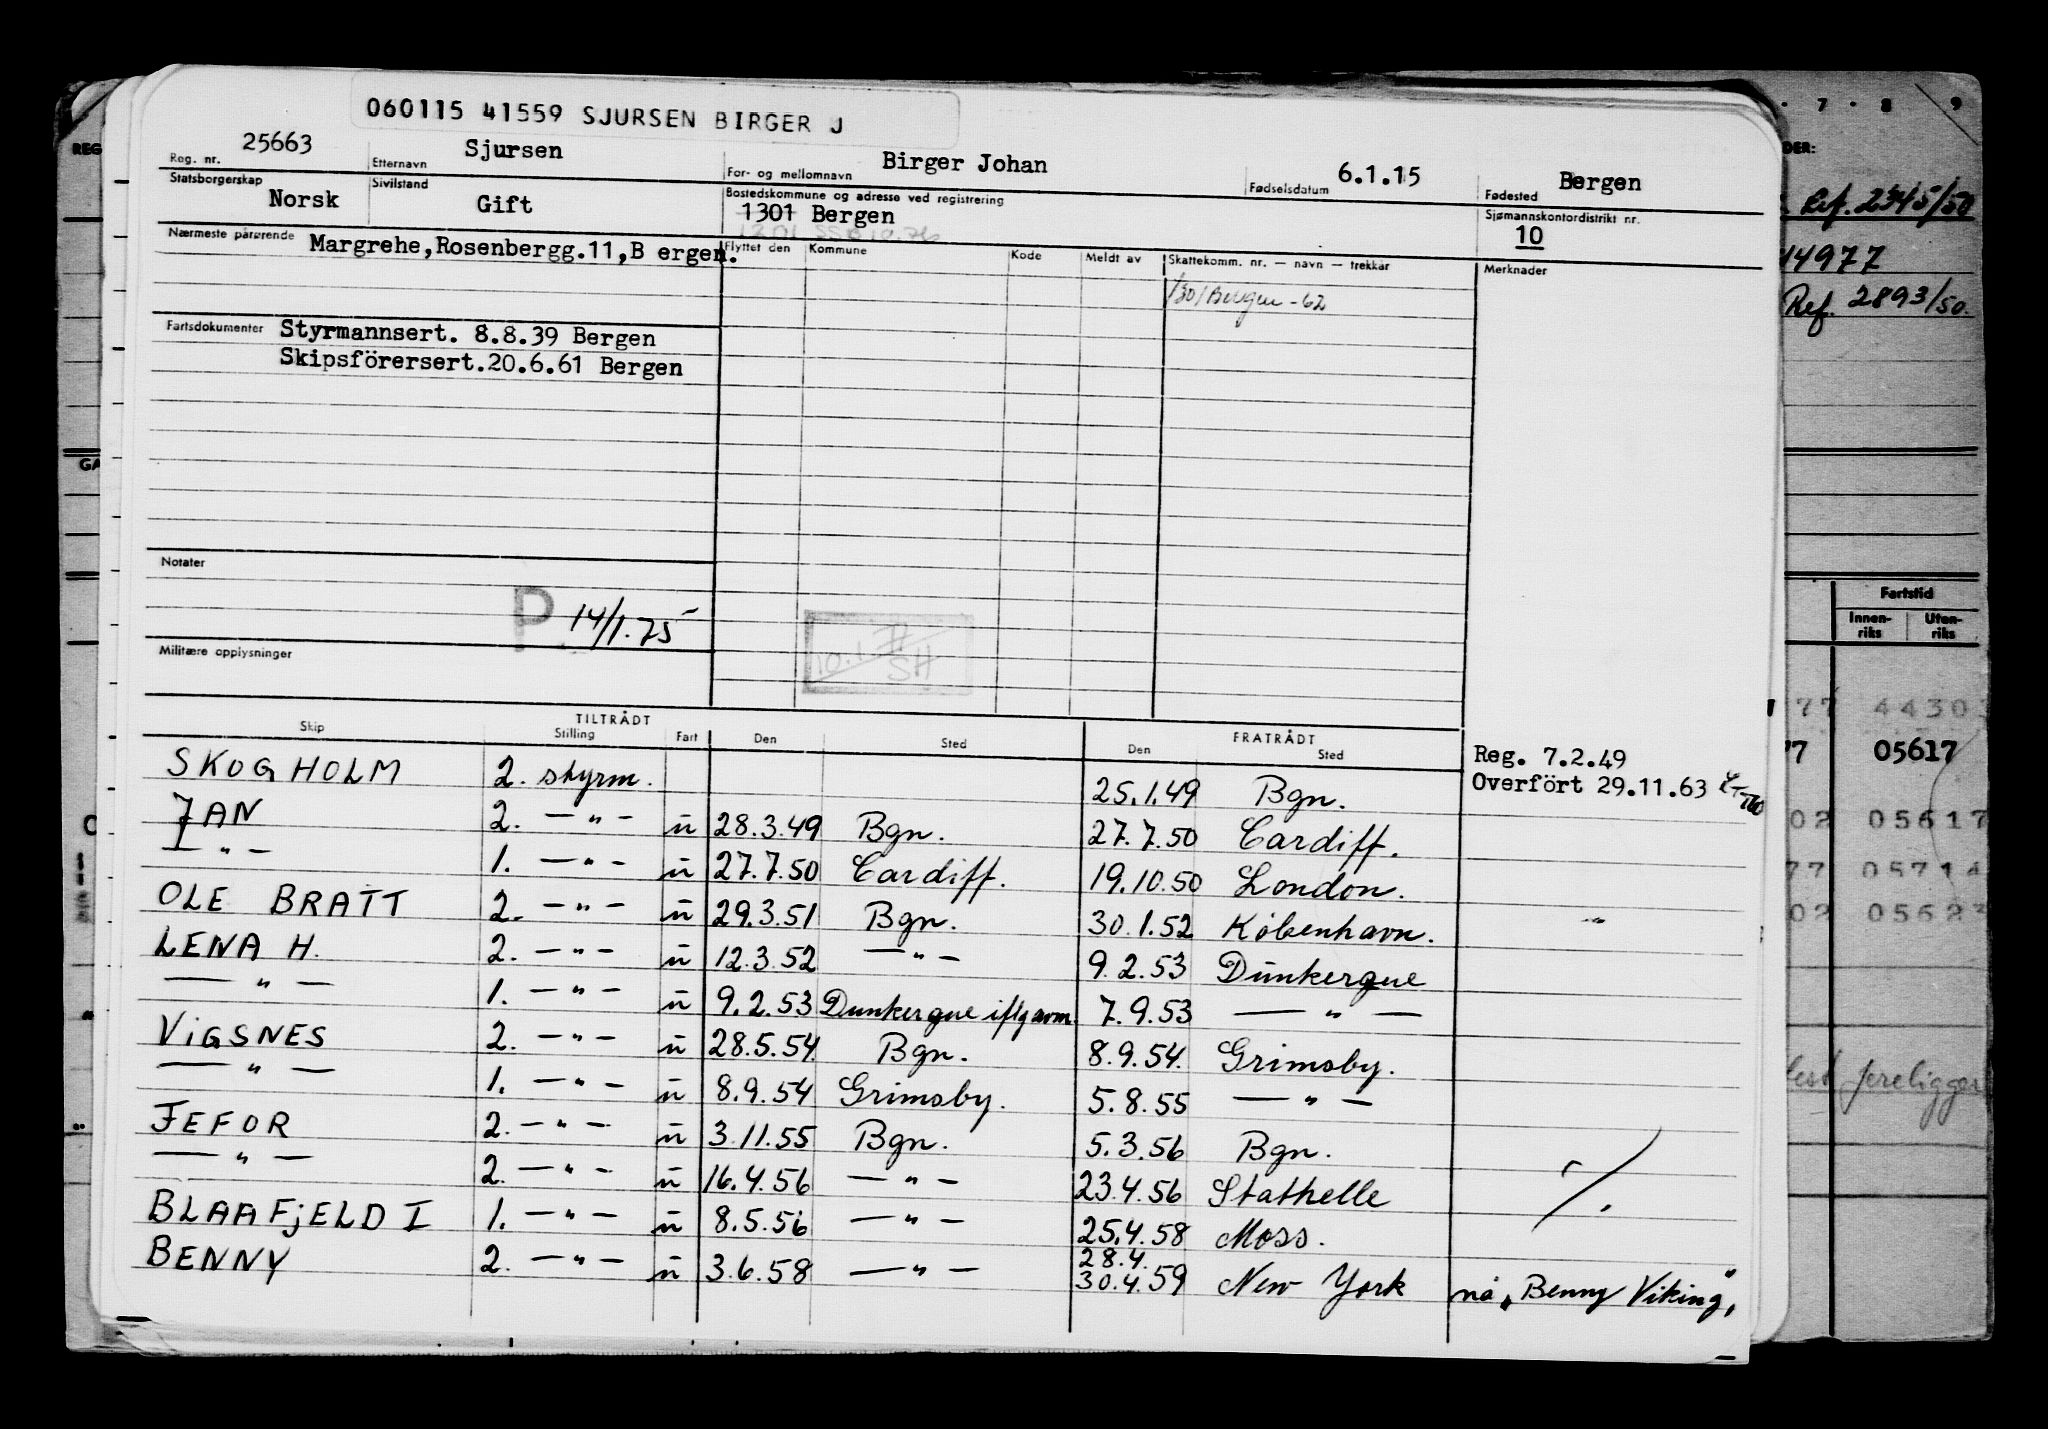 060115 41559 SJURSEN BIRGER J
Reg. nr. 25663 Etternavn Sjursen For- og mellomnavn Birger Johan Fødselsdatum 6.1.15 Fødested Bergen
Statsborgerskap Norsk Sivilstand Gift Bostedskommune og adresse ved registrering 1301 Bergen Sjømannskontordistrikt nr. 10
Nærmeste pårørende Margrehe,Rosenbergg.11,B ergen. Flyttet den Kommune Kode Meldt av Skattekomm. nr. — navn — trekkår Merknader
1301 Bergen - 62
Fartsdokumenter Styrmannsert. 8.8.39 Bergen
Skipsförersert.20.6.61 Bergen
Notater
P 14/1.75
Militære opplysninger
TILTRÅDT FRATRÅDT
Skip Stilling Fart Den Sted Den Sted
Reg. 7.2.49
Overfört 29.11.63
SKOGHOLM 2. styrm. 25.1.49 Bgn.
JAN 2. —"— u 28.3.49 Bgn. 27.7.50 Cardiff.
—"— 1. —"— u 27.7.50 Cardiff. 19.10.50 London.
OLE BRATT 2. —"— u 29.3.51 Bgn. 30.1.52 København.
LENA H. 2. —"— u 12.3.52 —"— 9.2.53 Dunkerque
—"— 1. —"— u 9.2.53 Dunkerque iflg avm. 7.9.53 —"—
ViGSNES 2. —"— u 28.5.54 Bgn. 8.9.54. Grimsby.
—"— 1. —"— u 8.9.54 Grimsby. 5.8.55 —"—
JEFOR 2. —"— u 3.11.55 Bgn. 5.3.56 Bgn.
—"— 2. —"— u 16.4.56 —"— 23.4.56 Stathelle
BLAAFjELD I 1. —"— u 8.5.56 —"— 25.4.58 Moss.
BENNY 2. —"— u 3.6.58 —"— 28.4. 30.4.59 New York nå „Benny Viking"
7 8 9
Ref. 2345/50
44977
Ref. 2893/50.
Fartstid
Innenriks Utenriks
77 4430
77 05617
02 05617
77 05714
02 0562
foreligger